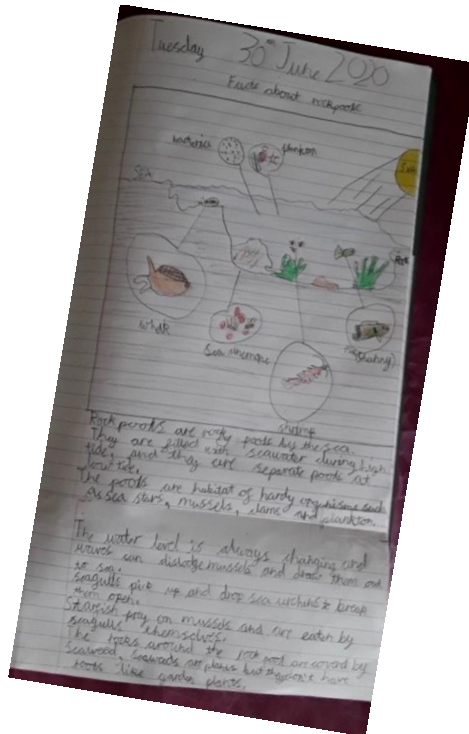 Tuesday 30th June 2020
Facts about rockpools
bacteria
plankton
Sun
Sea
whelk
Sea anemone
shrimp
Rockpools are rocky pools by the sea.
They are filled with seawater during high
tide, and they are separate pools at
low tide.
The pools are habitat of hardy organisms such
as sea stars, mussels, clams and plankton.
The water level is always changing and
waves can dislodge mussels and draw them out
to sea.
Seagulls pick up and drop sea urchins to break
them open.
Starfish prey on mussels and are eaten by
seagulls themselves.
The rocks around the rock pool are covered by
seaweed. seaweeds are plants but they don't have
roots like garden plants.